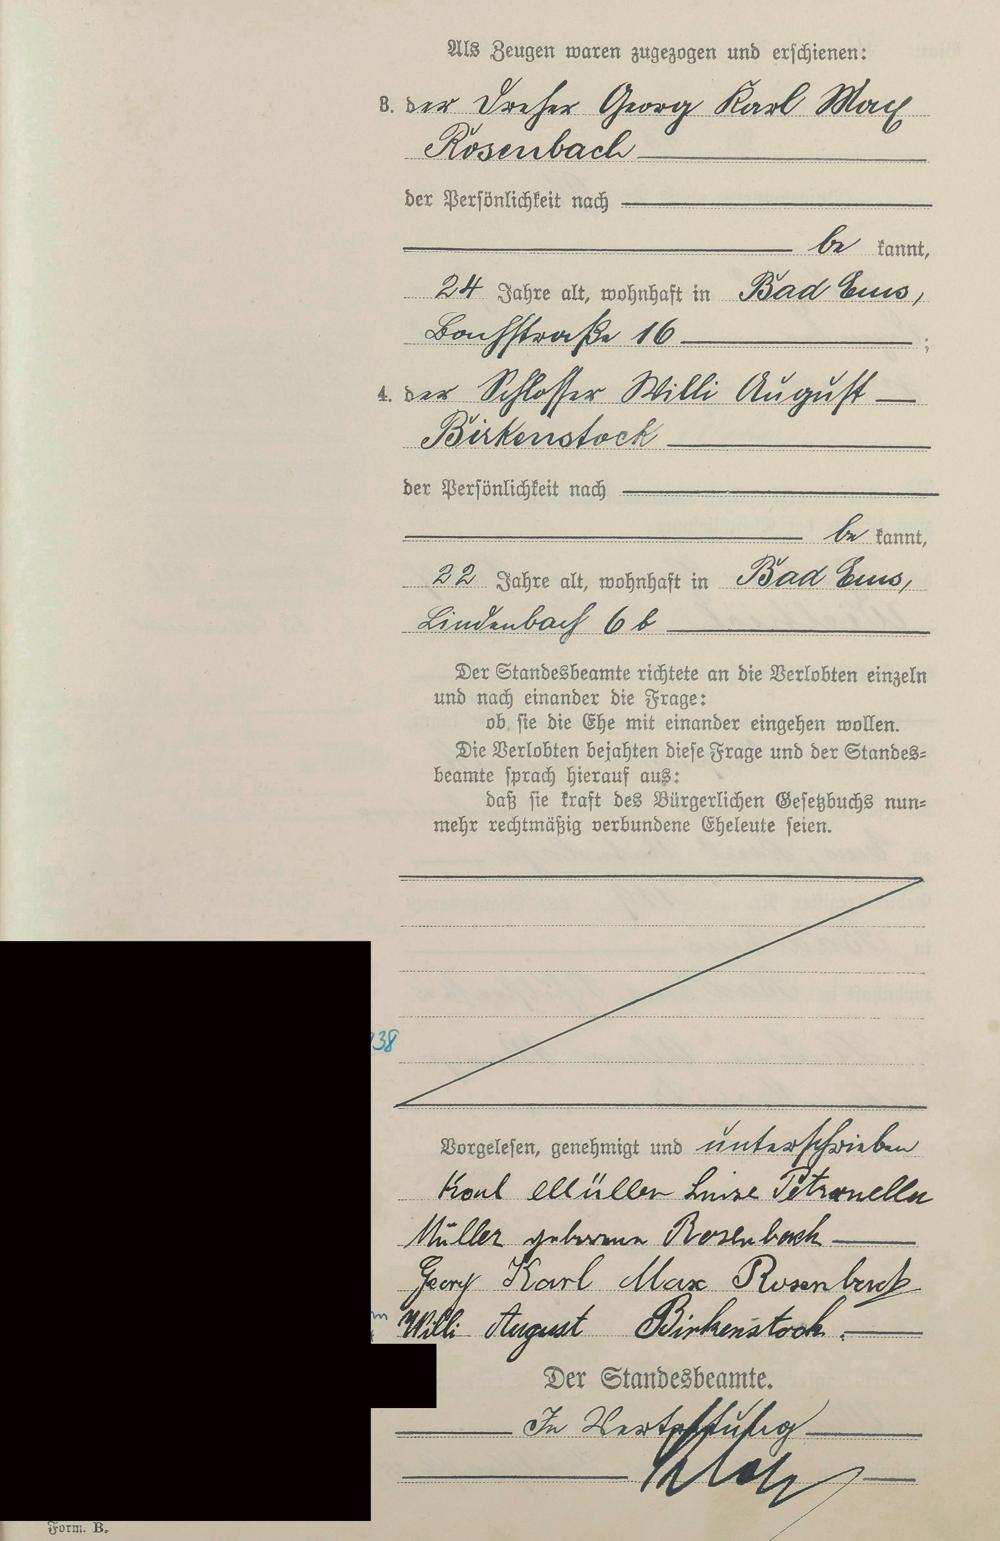 Als Zeugen waren zugezogen und erschienen:
3. der Dreher Georg Karl Max
Rosenbach
der Persönlichkeit nach
be kannt,
24 Jahre alt, wohnhaft in Bad Ems,
Bachstraße 16 ;
4. der Schlosser Willi August
Birkenstock
der Persönlichkeit nach
be kannt,
22 Jahre alt, wohnhaft in Bad Ems,
Lindenbach 6 b
Der Standesbeamte richtete an die Verlobten einzeln
und nach einander die Frage:
ob sie die Ehe mit einander eingehen wollen.
Die Verlobten bejahten diese Frage und der Standes-
beamte sprach hierauf aus:
daß sie kraft des Bürgerlichen Gesetzbuchs nun-
mehr rechtmäßig verbundene Eheleute seien.
38
Vorgelesen, genehmigt und unterschrieben
Karl Müller Luise Petronella
Müller geborene Rosenbach
Georg Karl Max Rosenbach
Willi August Birkenstock.
Der Standesbeamte.
In Vertretung
Form. B.